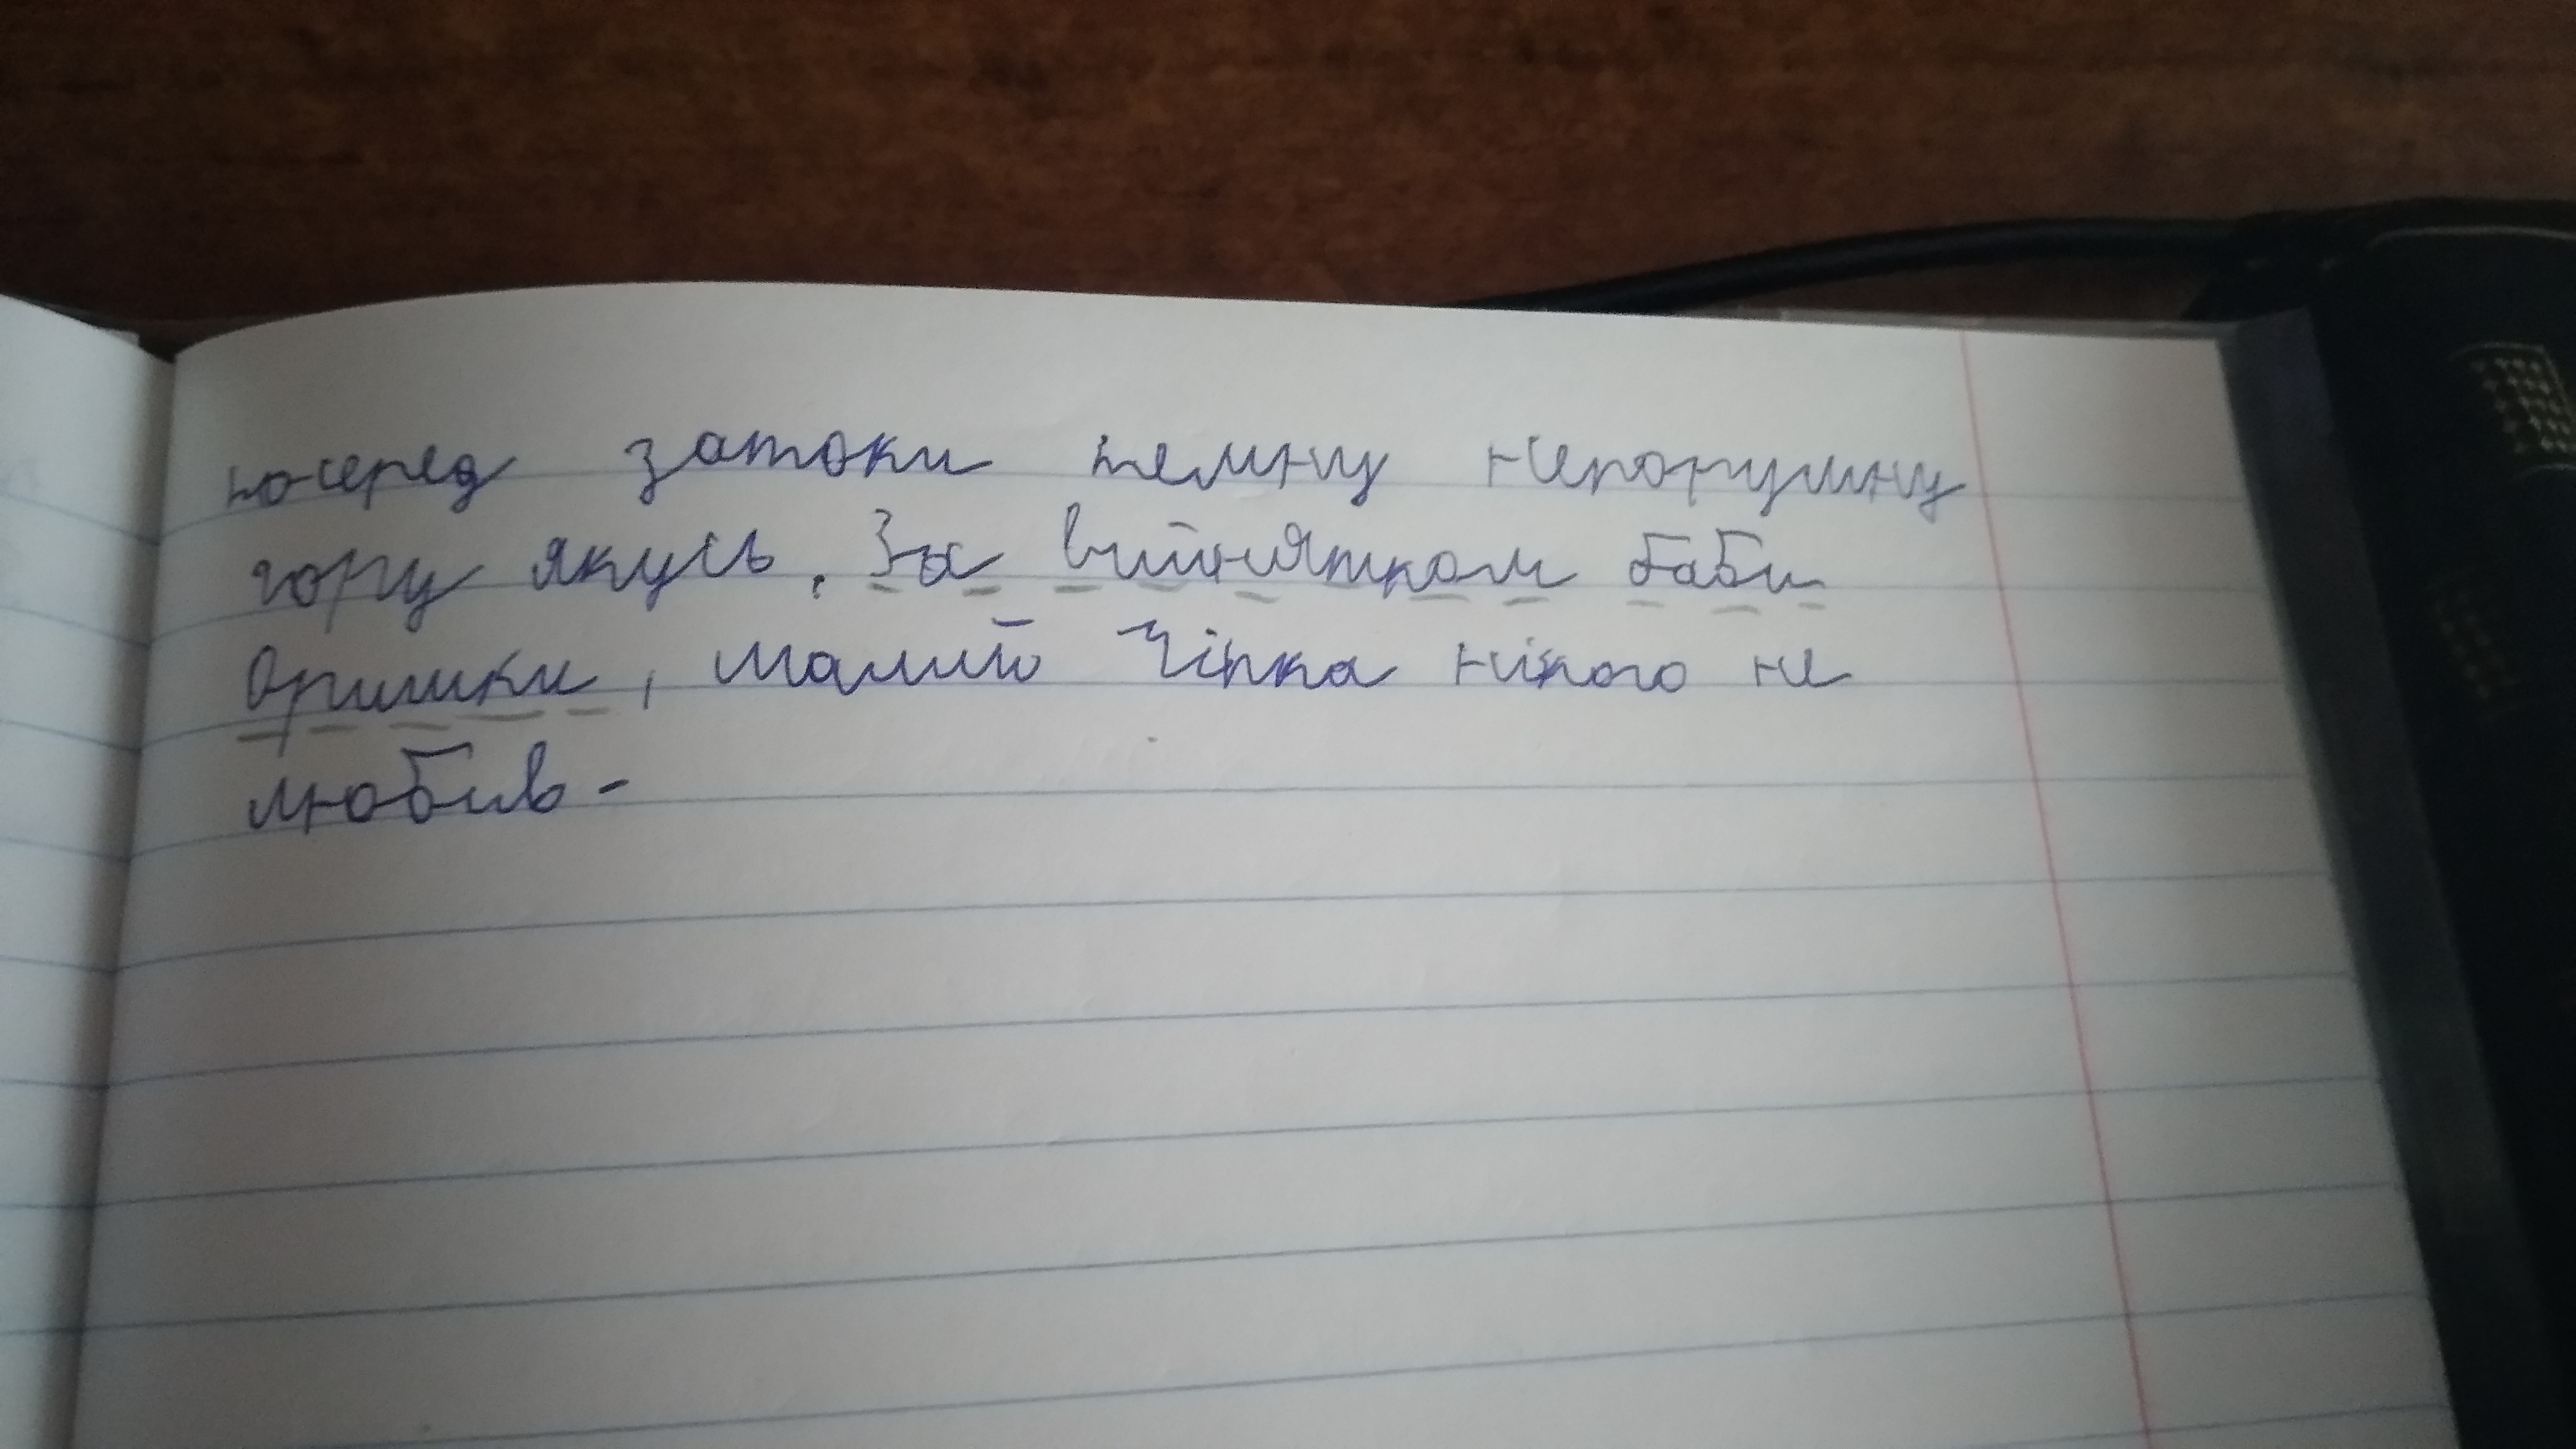 посеред затоки темну непорушну
гору якусь. За вийнятком баби
Оришки, малий Чіпка нікого не
любив.